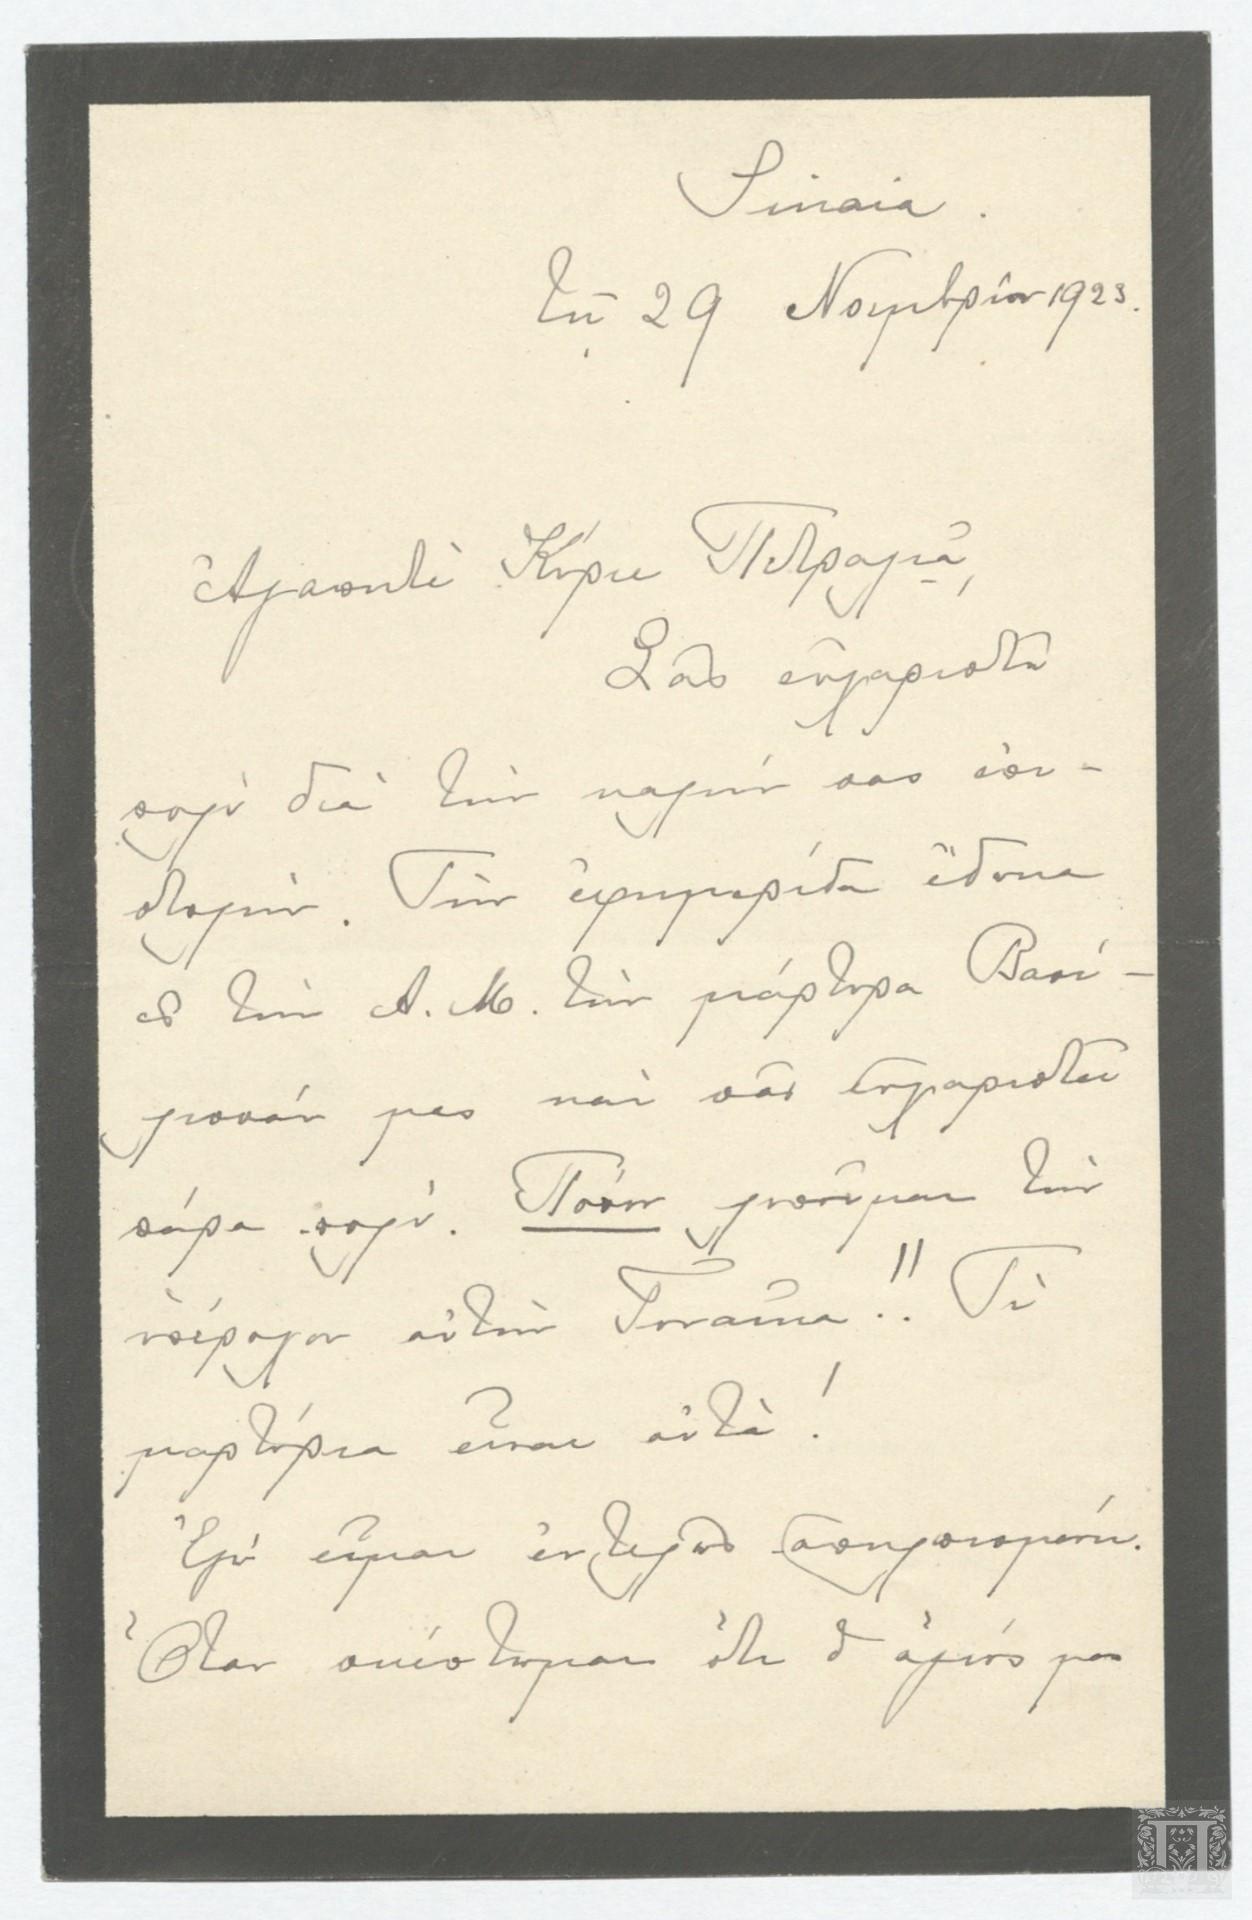 Sinaia.
τῇ 29 Νοεμβρίου 1923.
Ἀγαπητὲ Κύριε Πετραλιᾶ,
Σᾶς εὐχαριστῶ
πολὺ διὰ τὴν καλήν σας ἐπι-
στολήν. Τὴν ἐφημερίδα ἔδωκα
εἰς τὴν Α. Μ. τὴν μάρτυρα Βασί-
λισσάν μας καὶ σᾶς εὐχαριστεῖ
πάρα πολύ. Πόσον λυποῦμαι τὴν
ὑπέροχον αὐτὴν Γυναῖκα!! Τὶ
μαρτύρια εἶναι αὐτὰ!
Ἐγὼ εἶμαι ἐντελῶς ἀπηλπισμένη.
Ὅταν σκέπτωμαι ὅτι ὁ υἱός μου